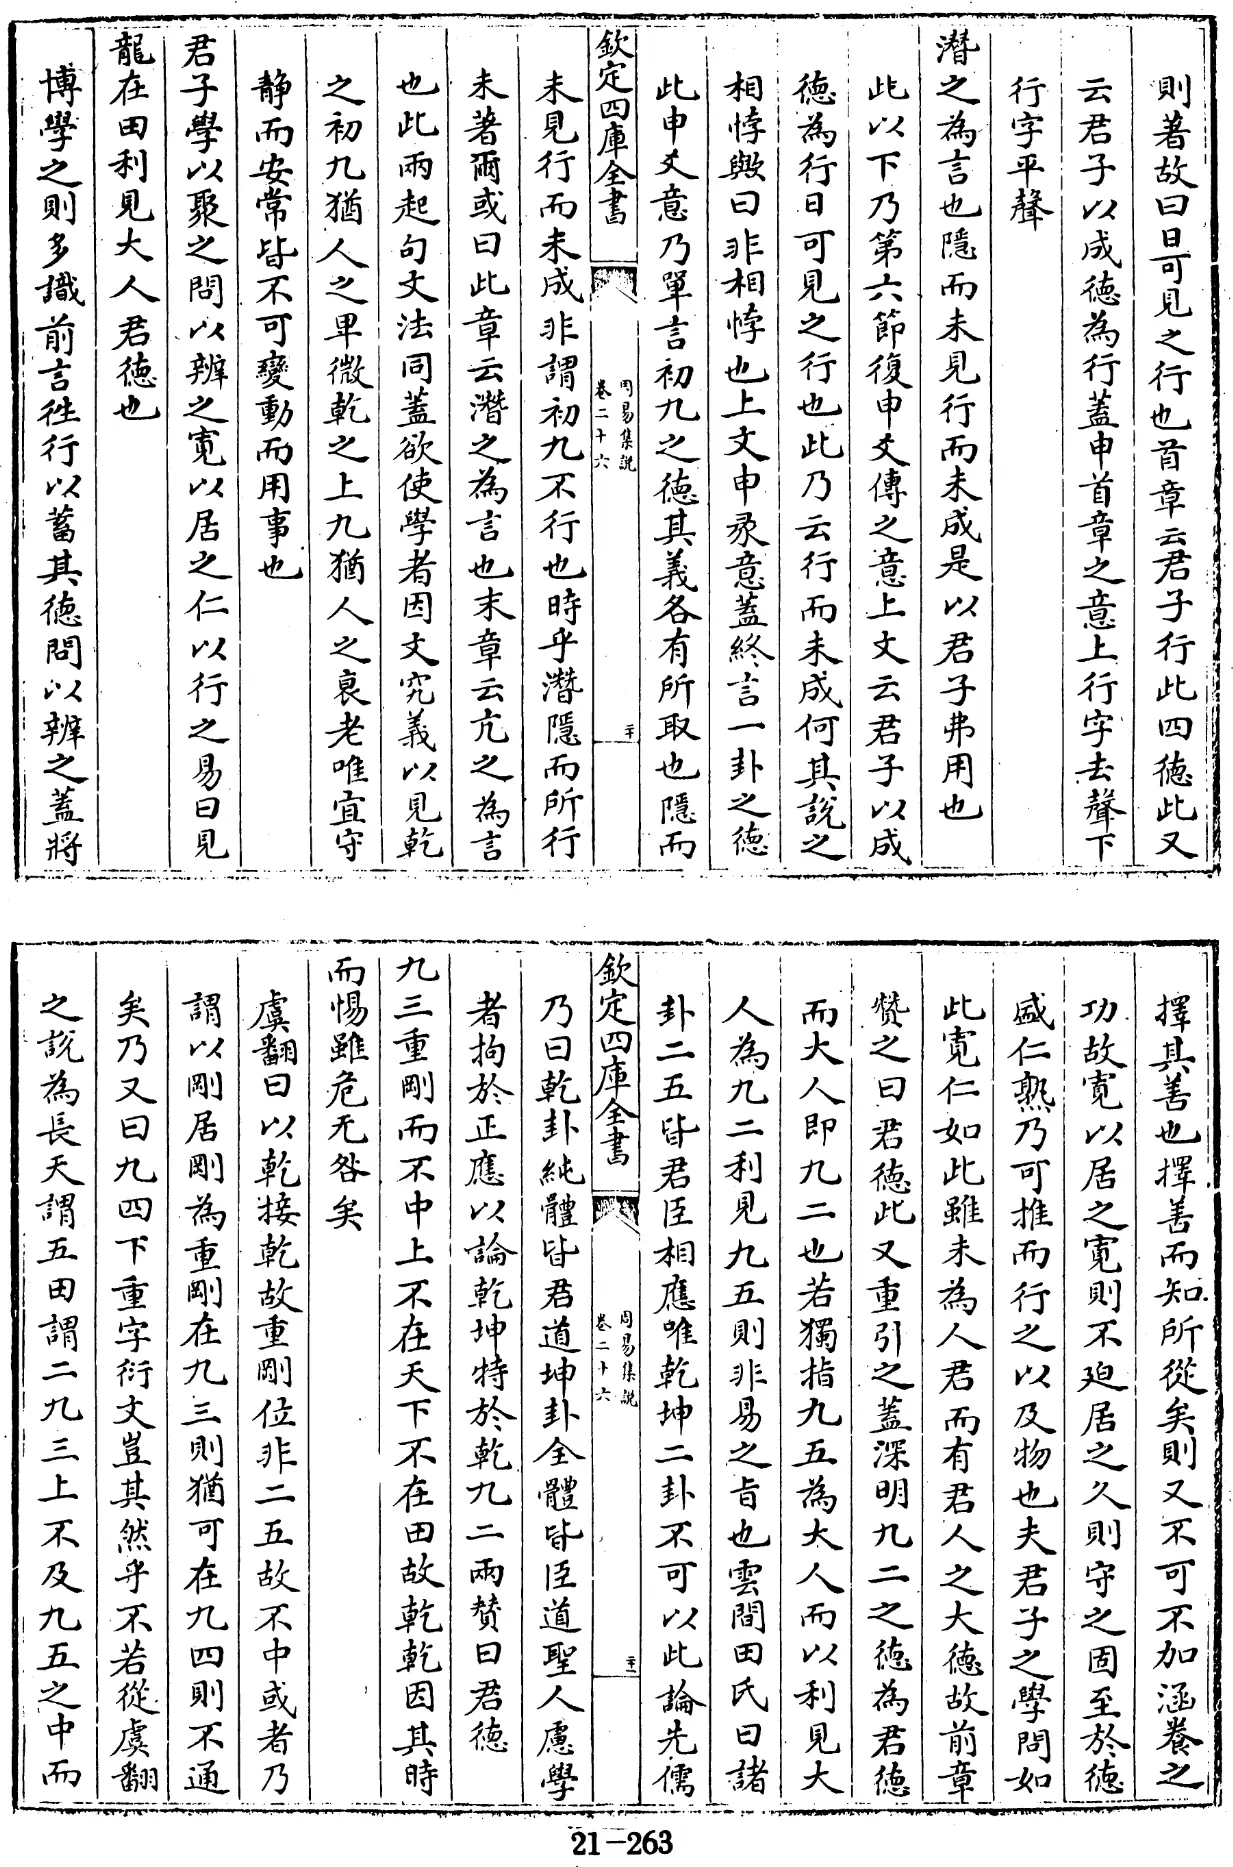 則著故曰日可見之行也首章云君子行此四德此又
云君子以成德為行蓋申首章之意上行字去聲下
行字平聲
潛之為言也隱而未見行而未成是以君子弗用也
此以下乃第六節復申爻傳之意上文云君子以成
德為行日可見之行也此乃云行而未成何其說之
相悖歟曰非相悖也上文申彖意蓋終言一卦之德
此申爻意乃單言初九之德其義各有所取也隱而
欽定四庫全書
周易集說
卷二十六
二十
未見行而未成非謂初九不行也時乎潛隱而所行
未著爾或曰此章云潛之為言也末章云亢之為言
也此兩起句文法同蓋欲使學者因文究義以見乾
之初九猶人之卑微乾之上九猶人之衰老唯宜守
靜而安常皆不可變動而用事也
君子學以聚之問以辨之寬以居之仁以行之易曰見
龍在田利見大人君德也
博學之則多識前言往行以蓄其德問以辨之蓋將
擇其善也擇善而知所從矣則又不可不加涵養之
功故寬以居之寬則不迫居之久則守之固至於德
盛仁熟乃可推而行之以及物也夫君子之學問如
此寬仁如此雖未為人君而有君人之大德故前章
贊之曰君德此又重引之蓋深明九二之德為君德
而大人即九二也若獨指九五為大人而以利見大
人為九二利見九五則非易之旨也雲間田氏曰諸
卦二五皆君臣相應唯乾坤二卦不可以此論先儒
欽定四庫全書
周易集說
卷二十六
二十一
乃曰乾卦純體皆君道坤卦全體皆臣道聖人慮學
者拘於正應以論乾坤特於乾九二兩贊曰君德
九三重剛而不中上不在天下不在田故乾乾因其時
而惕雖危无咎矣
虞翻曰以乾接乾故重剛位非二五故不中或者乃
謂以剛居剛為重剛在九三則猶可在九四則不通
矣乃又曰九四下重字衍文豈其然乎不若從虞翻
之說為長天謂五田謂二九三上不及九五之中而
21-263